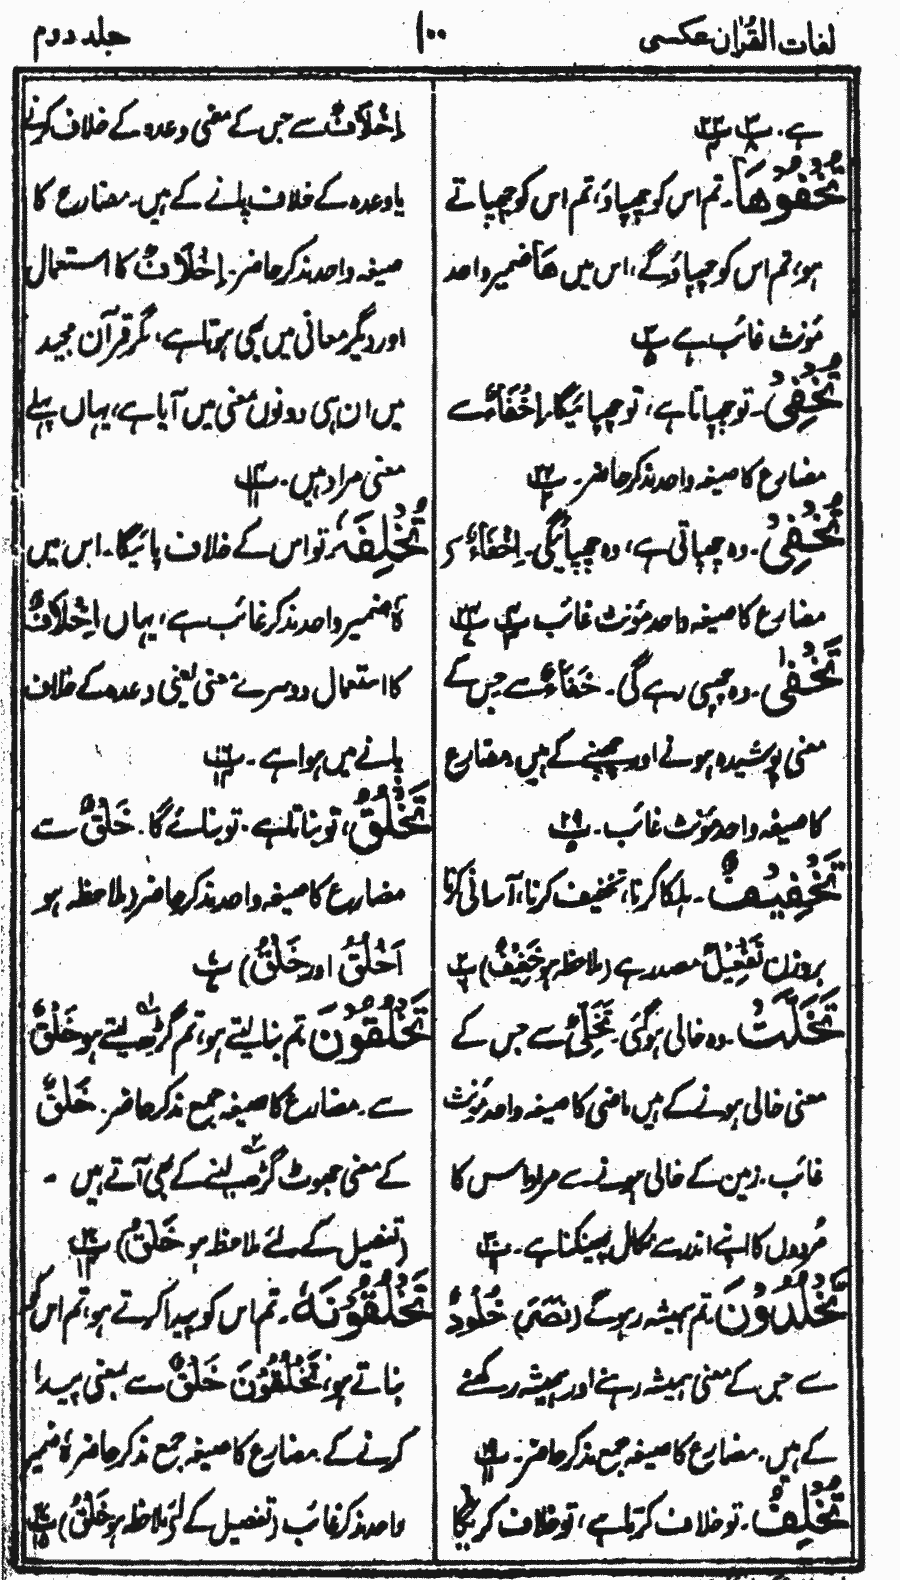 لغات القرآن عکسی
۱۰۰
جلد دوم
ہے۔
تُخْفُوْهَا۔ تم اس کو چھپاؤ، تم اس کو چھپاتے
ہو، تم اس کو چھپاؤ گے، اس میں ھَا ضمیر واحد
مؤنث غائب ہے
تُخْفِیْ۔ تو چھپاتا ہے، تو چھپائیگا۔ اِخْفَاءٌ سے
مضارع کا صیغہ واحد مذکر حاضر۔
تُخْفِیْ۔ وہ چھپاتی ہے، وہ چھپائیگی۔ اِخْفَاءٌ
مضارع کا صیغہ واحد مؤنث غائب
تَخْفٰی۔ وہ چھپی رہے گی۔ خَفَاءٌ سے جس کے
معنی پوشیدہ ہونے اور چھپنے کے ہیں، مضارع
کا صیغہ واحد مؤنث غائب۔
تَخْفِیْفٌ۔ ہلکا کرنا، تخفیف کرنا، آسانی کرنا
بروزن تَفْعِیْلٌ مصدر ہے (ملاحظہ ہو خَفِیْفٌ)
تَخَلَّتْ۔ وہ خالی ہو گئی۔ تَخَلِّیْ سے جس کے
معنی خالی ہونے کے ہیں ماضی کا صیغہ واحد مؤنث
غائب۔ زمین کے خالی ہونے سے مراد اس کا
مُردوں کا اپنے اندر سے نکال پھینکنا ہے۔
تَخْلُدُوْنَ۔ تم ہمیشہ رہو گے (نَصَرَ) خُلُوْدٌ
سے جس کے معنی ہمیشہ رہنے اور ہمیشہ رکھنے
کے ہیں۔ مضارع کا صیغہ جمع مذکر حاضر۔
تُخْلِفُ۔ تو خلاف کرتا ہے، تو خلاف کریگا
اِخْلَافٌ سے جس کے معنی وعدہ کے خلاف کرنے
یا وعدہ کے خلاف پانے کے ہیں۔ مضارع کا
صیغہ واحد مذکر حاضر۔ اِخْلَافٌ کا استعمال
اور دیگر معانی میں بھی ہوتا ہے، مگر قرآن مجید
میں ان ہی دونوں معنی میں آیا ہے، یہاں پہلے
معنی مراد ہیں۔
تُخْلَفَهٗ۔ تو اس کے خلاف پائیگا۔ اس میں
هٗ ضمیر واحد مذکر غائب ہے، یہاں اِخْلَافٌ
کا استعمال دوسرے معنی یعنی وعدہ کے خلاف
پانے میں ہوا ہے۔
تَخْلُقُ، تو بناتا ہے۔ تو بنائے گا۔ خَلْقٌ سے
مضارع کا صیغہ واحد مذکر حاضر (ملاحظہ ہو
اَخْلُقُ اور خَلْقٌ)
تَخْلُقُوْنَ تم بنا لیتے ہو، تم گڑھ لیتے ہو خَلْقٌ
سے۔ مضارع کا صیغہ جمع مذکر حاضر۔ خَلْقٌ
کے معنی جھوٹ گڑھ لینے کے بھی آتے ہیں۔
(تفصیل کے لئے ملاحظہ ہو خَلْقٌ)
تَخْلُقُوْنَهٗ۔ تم اس کو پیدا کرتے ہو، تم اس کو
بناتے ہو، تَخْلُقُوْنَ خَلْقٌ سے بمعنی پیدا
کرنے کے۔ مضارع کا صیغہ جمع مذکر حاضر هٗ ضمیر
واحد مذکر غائب (تفصیل کے لئے ملاحظہ ہو خَلْقٌ)